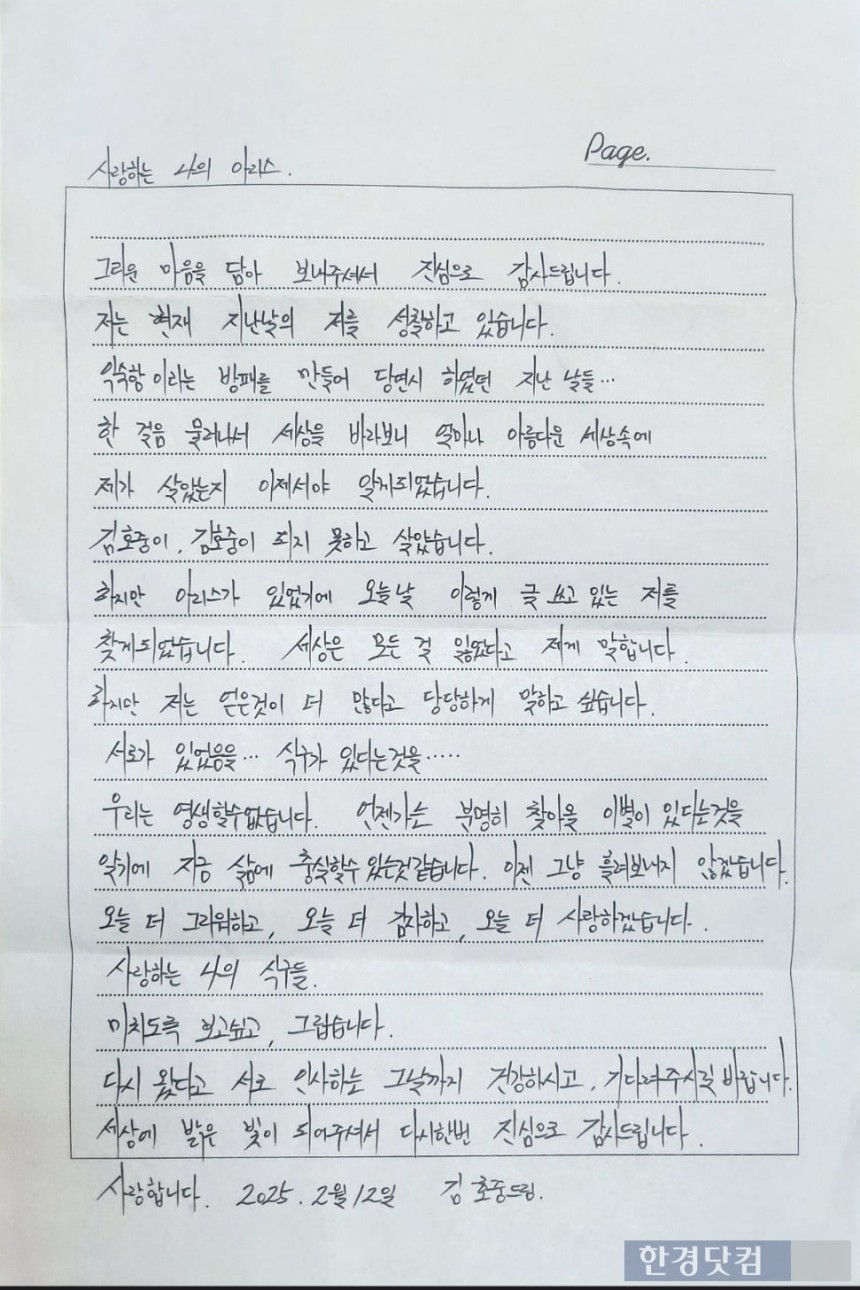 사랑하는 나의 아리스.
Page.
그리운 마음을 담아 보내주셔서 진심으로 감사드립니다.
저는 현재 지난날의 저를 성찰하고 있습니다.
익숙함 이라는 방패를 만들어 당연시 하였던 지난 날들...
한 걸음 물러나서 세상을 바라보니 얼마나 아름다운 세상속에
제가 살았는지 이제서야 알게되었습니다.
김호중이, 김호중이 되지 못하고 살았습니다.
하지만 아리스가 있었기에 오늘날 이렇게 글 쓰고 있는 저를
찾게되었습니다. 세상은 모든 걸 잃었다고 제게 말합니다.
하지만 저는 얻은것이 더 많다고 당당하게 말하고 싶습니다.
서로가 있었음을... 식구가 있다는것을.....
우리는 영생할수없습니다. 언젠가는 분명히 찾아올 이별이 있다는것을
알기에 지금 삶에 충실할수 있는것같습니다. 이젠 그냥 흘려보내지 않겠습니다.
오늘 더 그리워하고, 오늘 더 감사하고, 오늘 더 사랑하겠습니다.
사랑하는 나의 식구들.
미치도록 보고싶고, 그립습니다.
다시 왔다고 서로 인사하는 그날까지 건강하시고, 기다려주시길 바랍니다.
세상에 밝은 빛이 되어주셔서 다시한번 진심으로 감사드립니다.
사랑합니다. 2025. 2월 12일 김호중드림.
한경닷컴